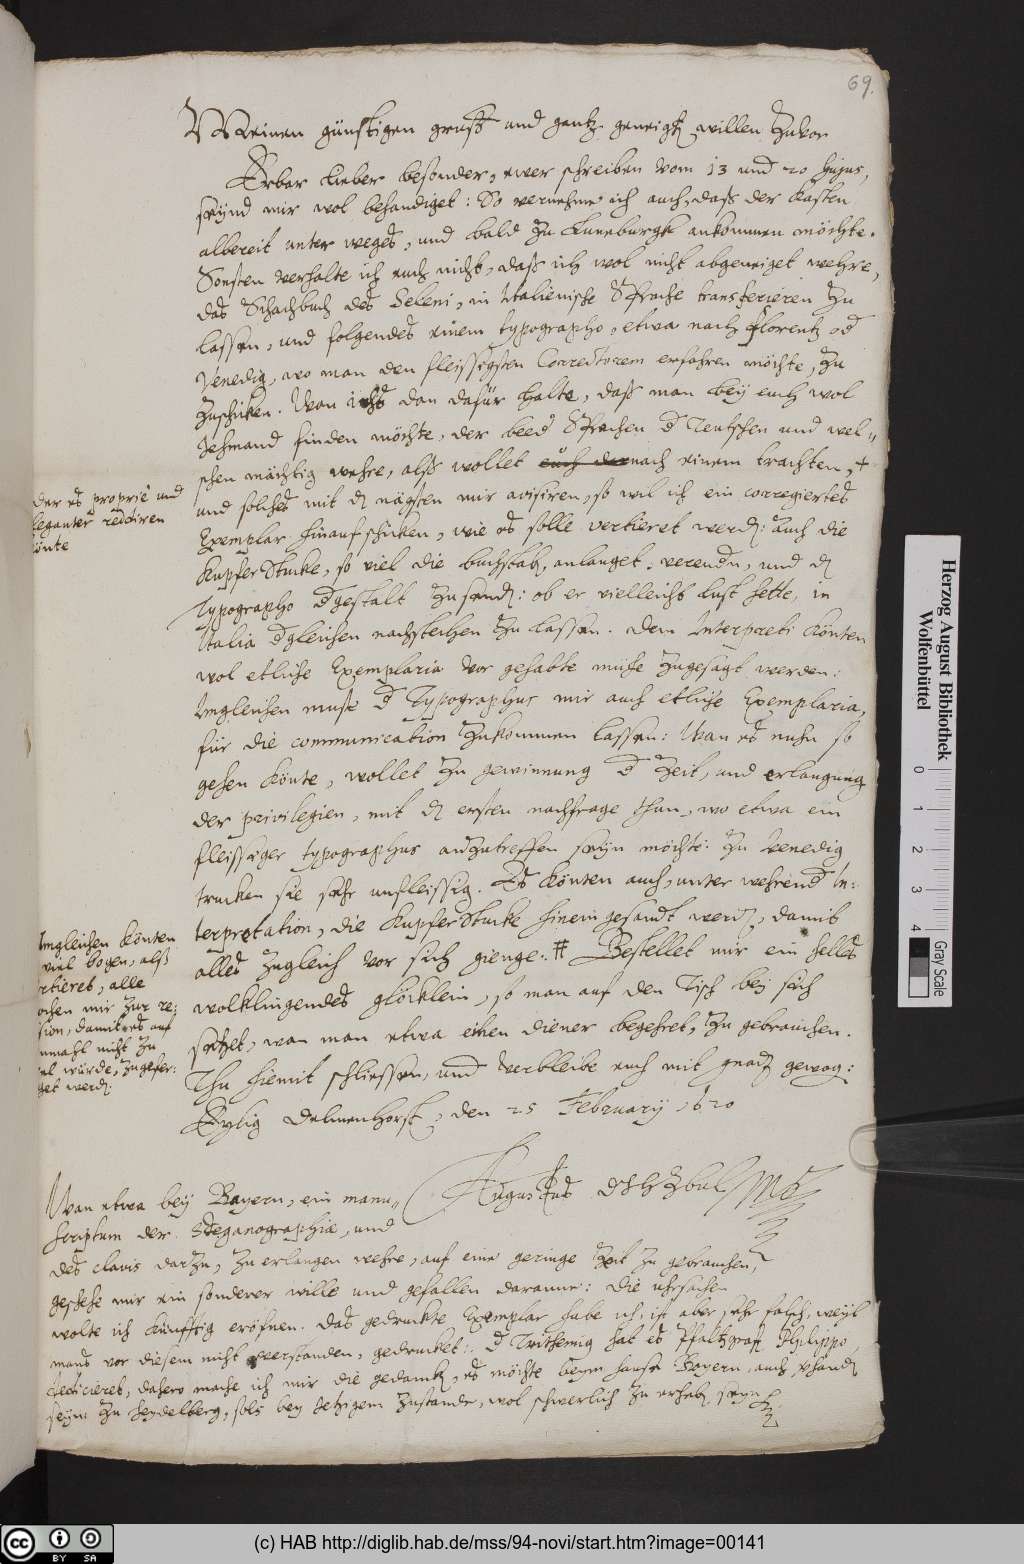 69.
Meinen günstigen gruß und gantz geneigt. willen Zuvor
Erbar lieber besonder, ewer schreiben vom 13 und 20 hujus,
seynd mir wol behandiget: So vernehme ich auch, daß der Kasten
albereit unter weges, und bald zu Luneburgk ankommen möchte.
Sonsten verhalte ich euch nicht, daß ich wol nicht abgeneiget wehre,
das Schachbuch des Seleni, in Italienische Sprache transferieren zu
lassen, und folgendes einem typographo, etwa nach Florentz od
Venedig, wo man den fleissigsten Correctorem erfahren möchte, zu
zuschicken. Wan ich dan dafür halte, daß man bey euch wol
Jehmand finden möchte, der beed Sprachen d Teutschen und wel=
schen mächtig wehre, alß wollet nach einem trachten, +
der es proprie und
eleganter reddiren
könte
und solches mit d nägsten mir avisiren, so wil ich ein corregiertes
Exemplar hinauf schicken, wie es solle vertieret werd: auch die
Kupfer Stucke, so viel die buchstab, anlanget, verend, und d
Typographo dgestalt zusend: ob er vielleicht lust hette, in
Italia dgleichen nachstechen zu lassen. Dem Interpreti könten
wol etliche Exemplaria vor gehabte mühe zugesagt werden:
Imgleichen muste d Typographus mir auch etliche Exemplaria,
für die communication zukommen lassen: Wan es nuhn so
gehen könte, wollet zu gewinnung d Zeit, und erlangung
der privilegien, mit d ersten nachfrage thun, wo etwa ein
fleissiger typographus anzutreffen seyn möchte: zu Venedig
trucken sie sehr unfleissig. Es könten auch, unter wehrend In:
terpretation, die Kupfer Stucke hinein gesandt werd, damit
alles zugleich vor sich gienge: # Bestellet mir ein helles
Imgleichen könten
viel bogen, alß
vertieret, alle
wochen mir zur re:
vision, damit es auf
einmahl nicht zu
viel würde, zugefer:
tiget werd.
wolklingendes glöcklein, so man auf den Tisch bey sich
setzet, wan man etwa einen diener begehret, zu gebrauchen.
Thu hiemit schliessen, und verbleibe euch mit gnad gewog:
Eylig Delmenhorst, den 25 February, 1620
Augustus DJHZBUL
Wan etwa bey Bayern, ein manu=
scriptum der Steganographiæ, und
des clavis darzu, zu erlangen wehre, auf eine geringe Zeit zu gebrauchen,
geschehe mir ein sonderer wille und gefallen daranne: die uhrsachen
wolte ich künfftig eröfnen. Das gedruckte Exemplar habe ich, ist aber sehr falsch, weyl
mans vor diesem nicht verstanden, gedrucket: d Trithemig hat es Pfaltzgraf Philippo,
dediciret, dahero mache ich mir die gedanck, es möchte beym hause Bayern, auch vhand
seyn: zu Heydelberg, sols bey jetzigem Zustande, wol schwerlich zu erhab seyn
Herzog August Bibliothek
Wolfenbüttel
0 1 2 3 4
Gray Scale
cc BY SA
(c) HAB http://diglib.hab.de/mss/94-novi/start.htm?image=00141